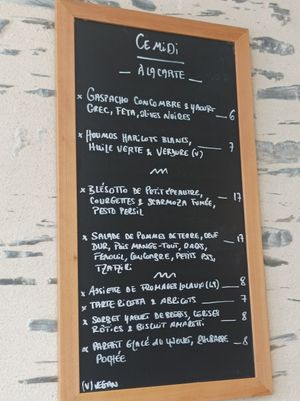 CE MiDi
— À LA CARTE —
x GASPACHO CONCOMBRE & YAOURT
GREC, FETA, OLIVES NOIRES — 6
x HOUMOS HARICOTS BLANCS, — 7
HUILE VERTE & VERDURE (V)
x BLÉSOTTO DE PETIT ÉPEAUTRE, — 17
COURGETTES & SCARMOZA FUMÉE,
PESTO PERSIL
x SALADE DE POMMES DE TERRE, OEUF — 17
DUR, POIS MANGE-TOUT, RADIS,
FENOUIL, CONCOMBRE, PETITS POIS,
TZATZIKI
x ASSIETTE DE FROMAGES LOCAUX — 8
x TARTE RICOTTA & ABRICOTS — 7
x SORBET YAOURT DE BREBIS, CERISES — 8
RÔTIES & BISCUIT AMARETTI
x PARFAIT GLACÉ AU YAOURT, RHUBARBE — 8
POCHÉE
(V) VEGAN